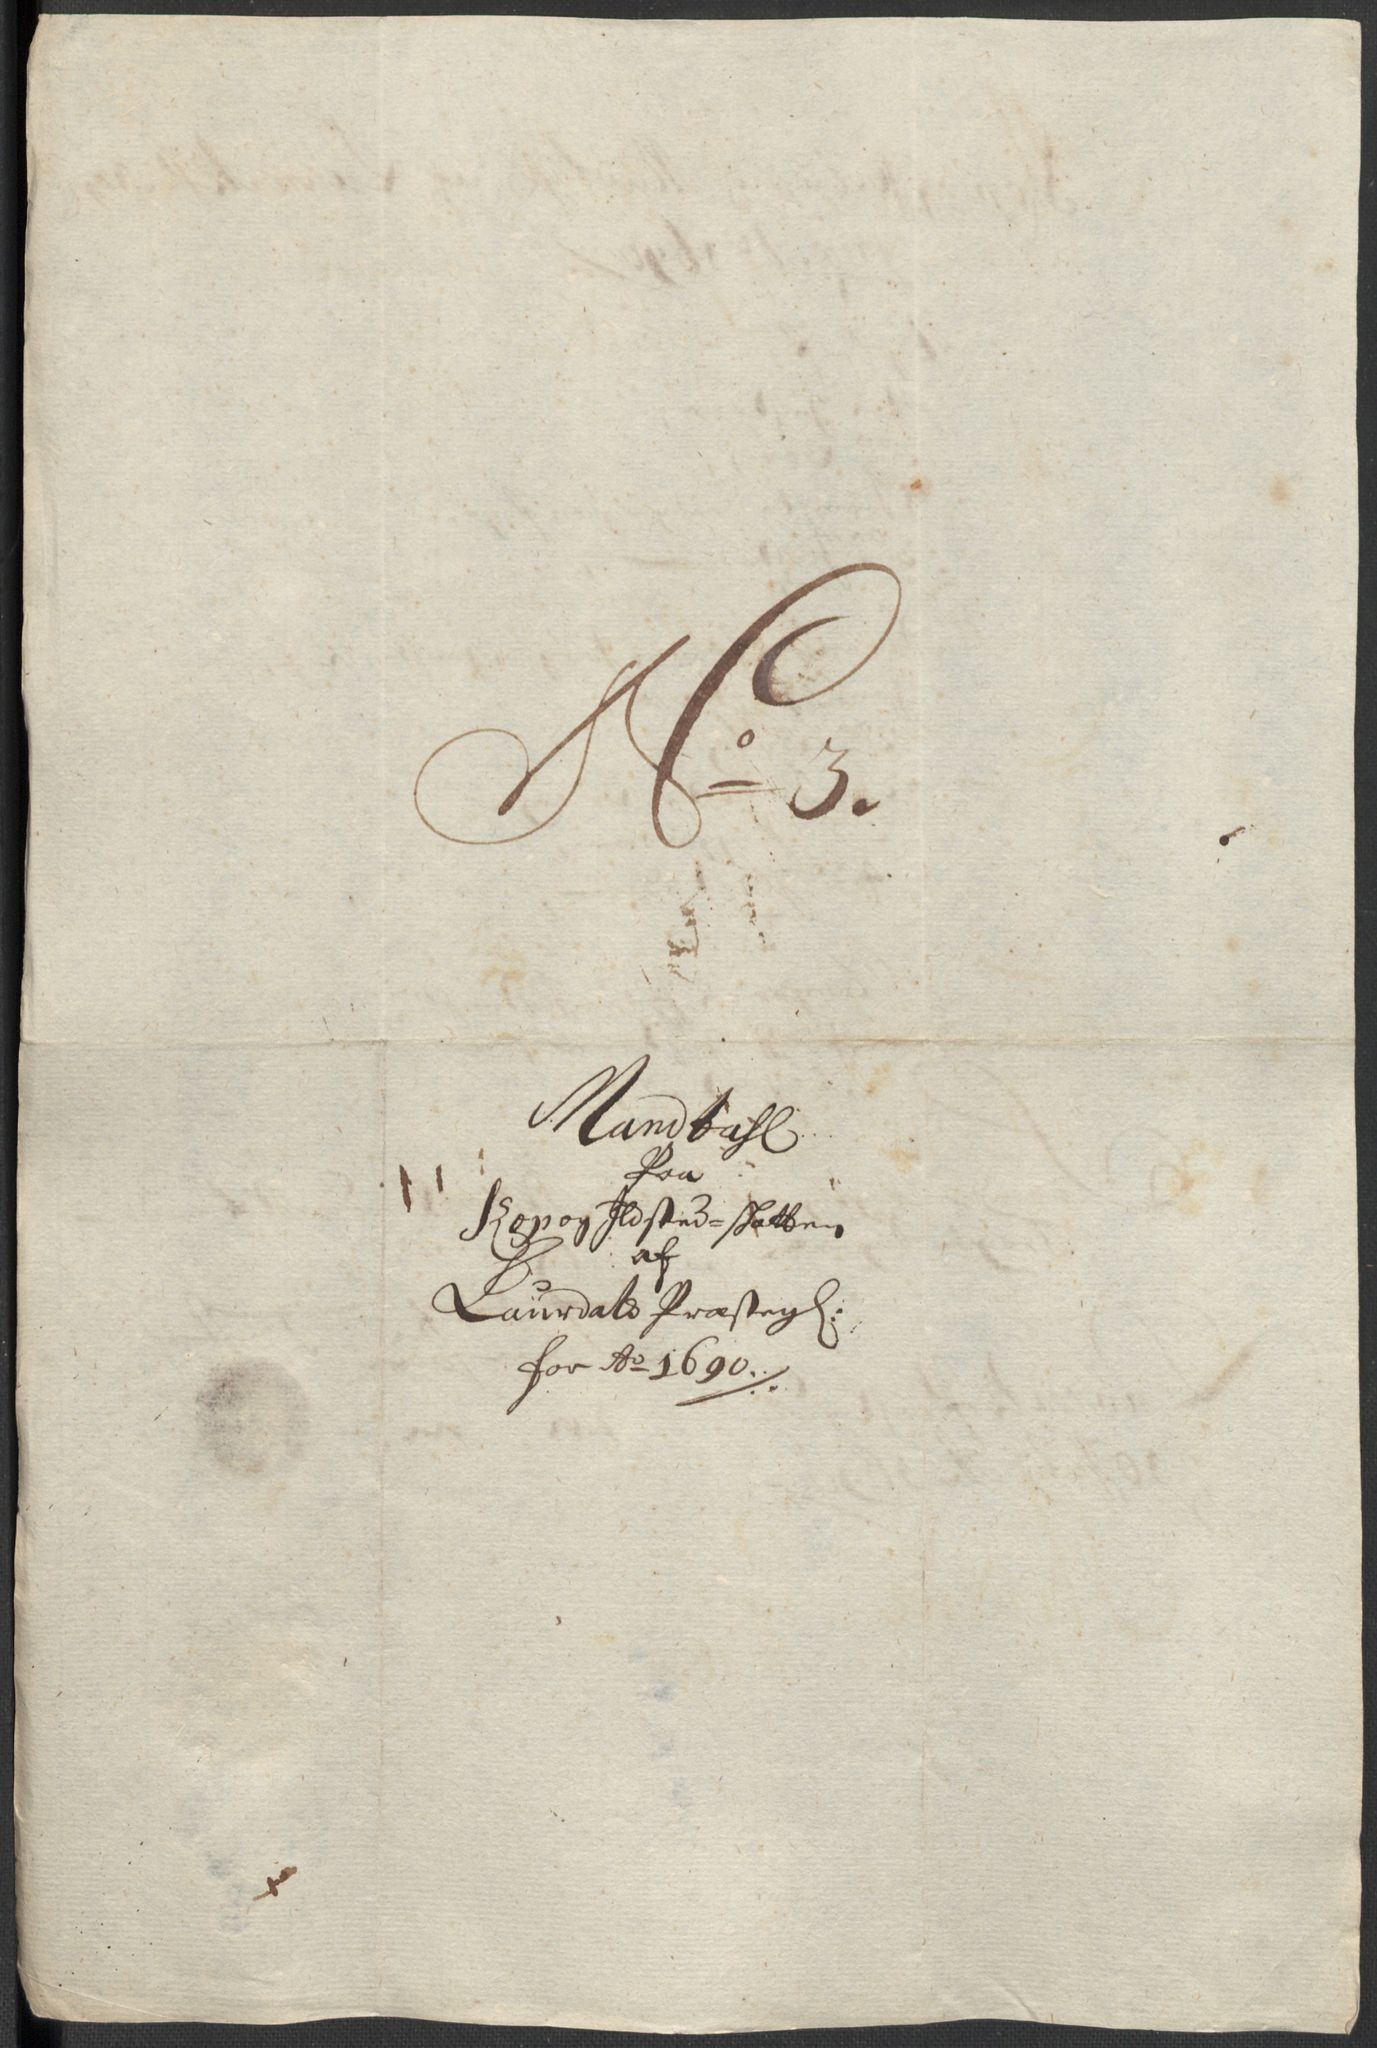 No 3.
Mandtahl
Paa
Kop og Ildsted=skatten
af
Laurdals Præstegl:
for Ao 1690.